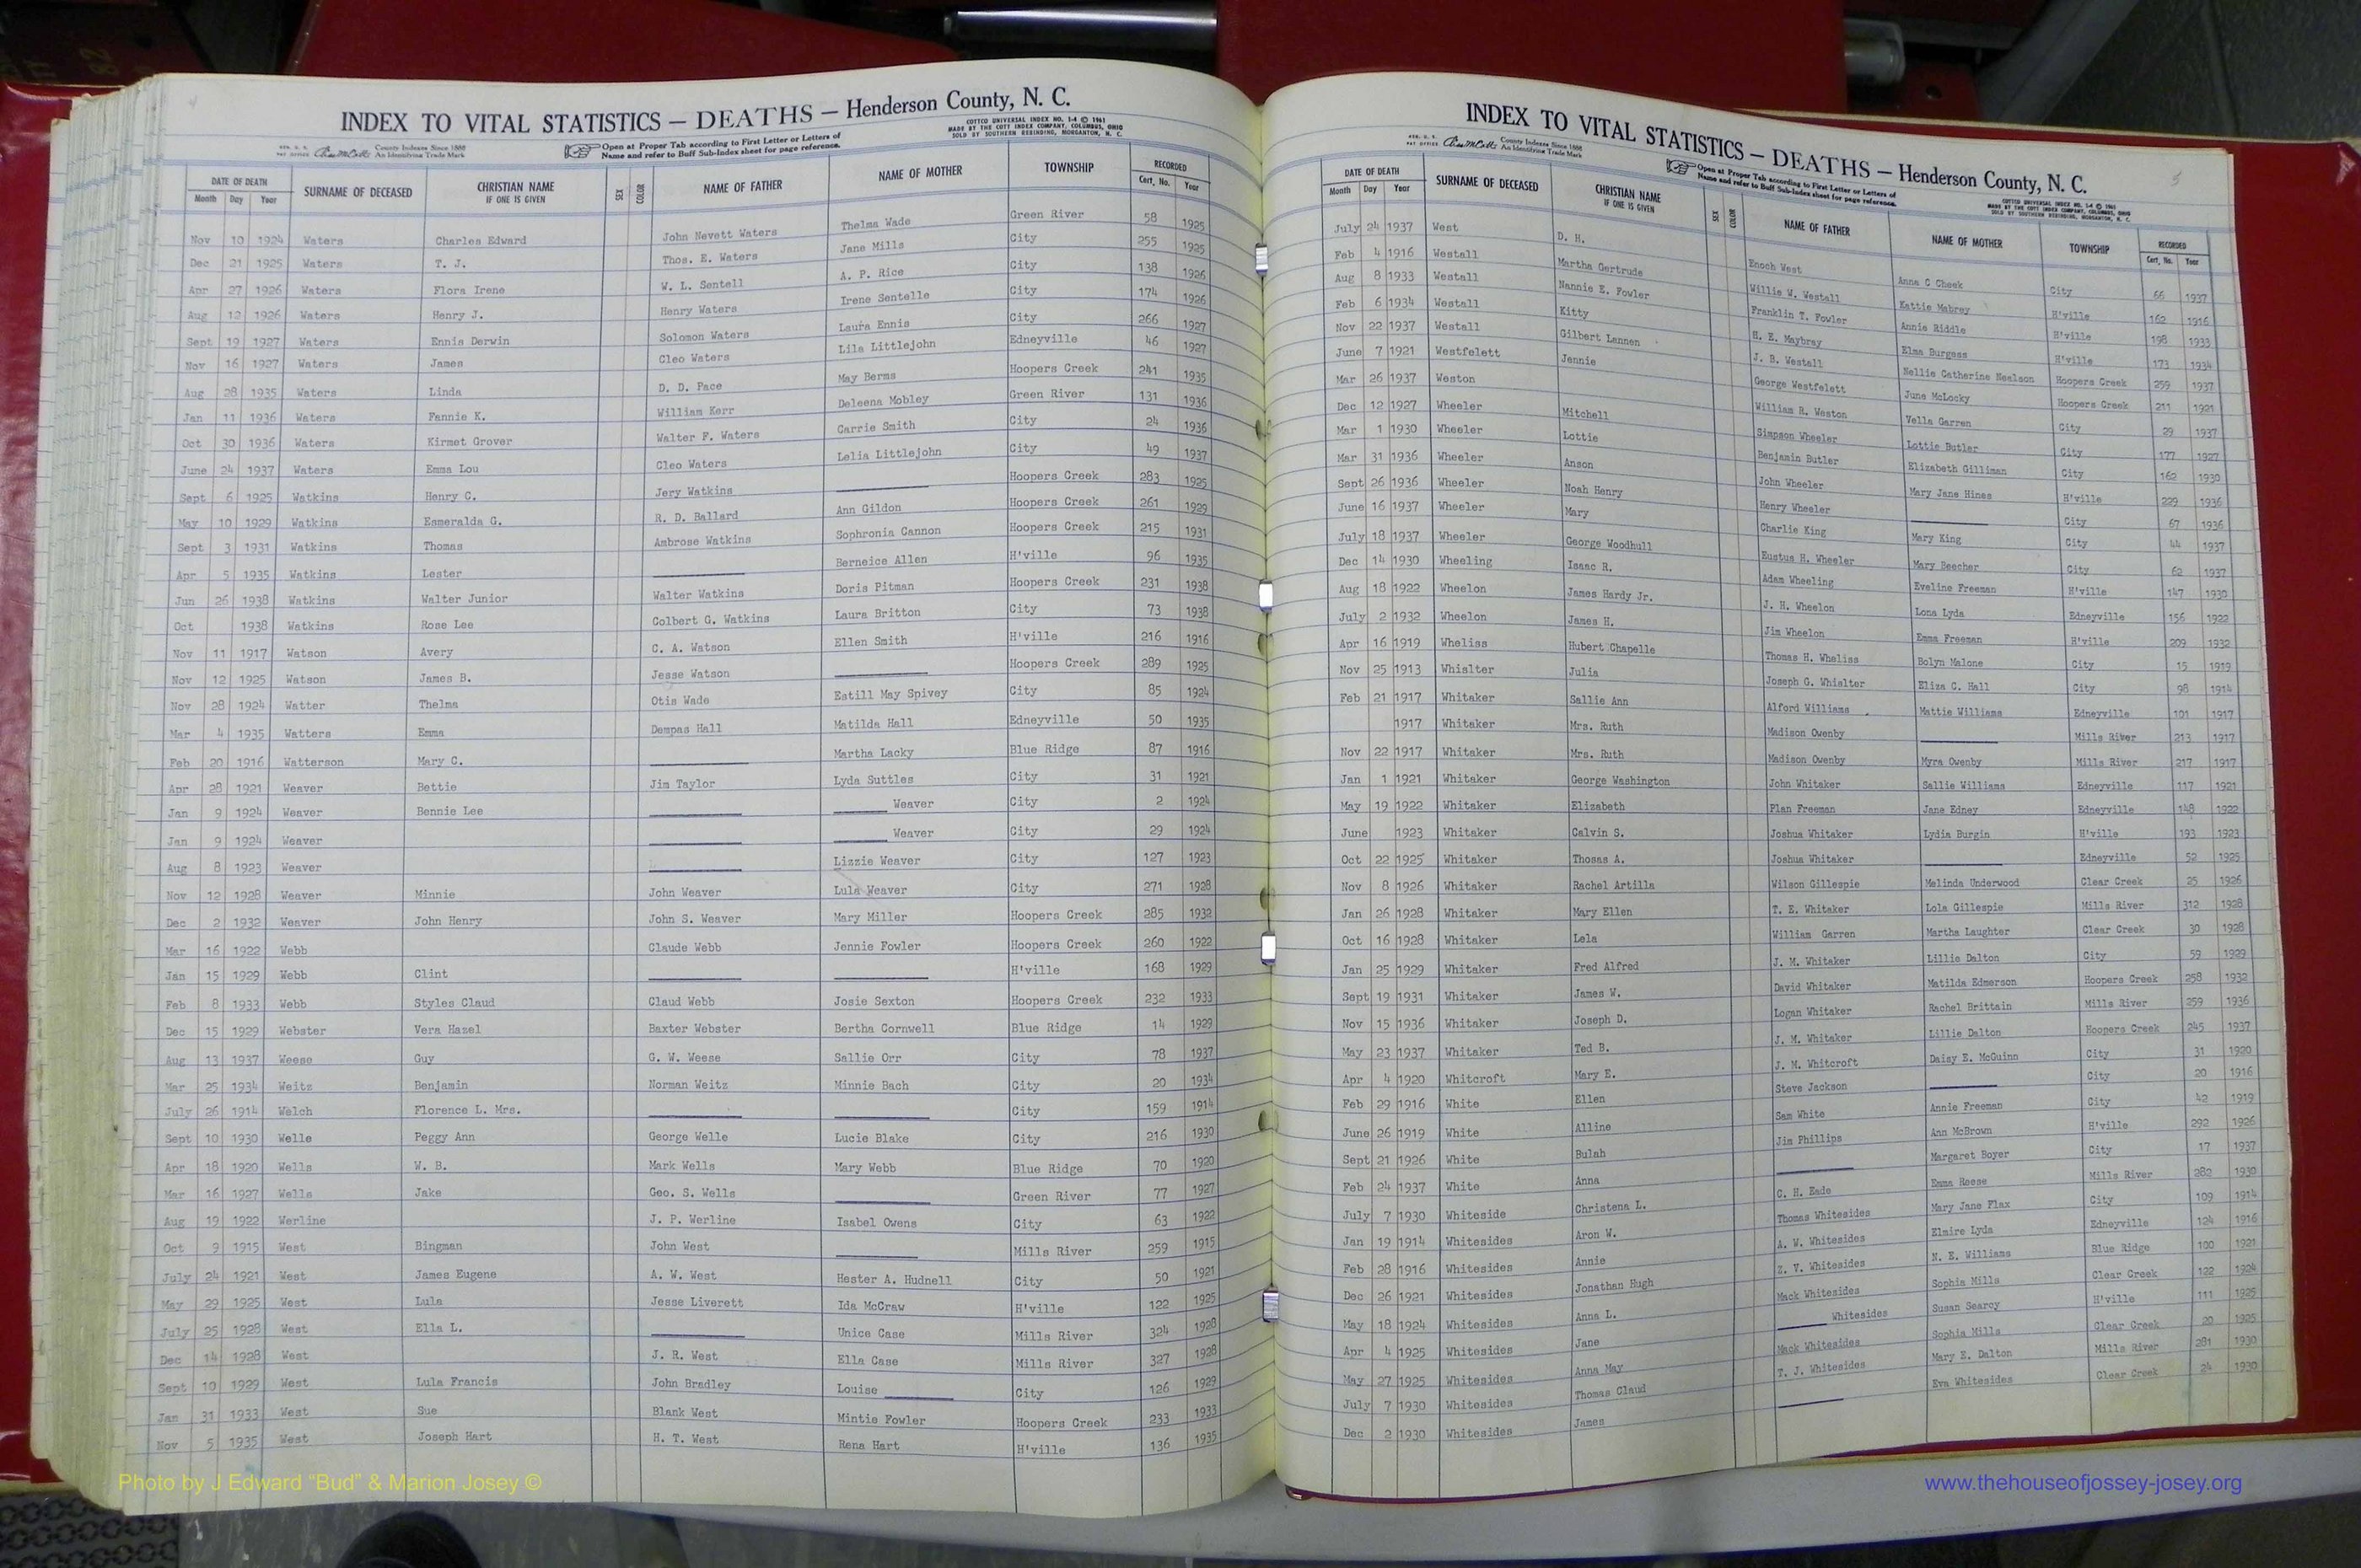 INDEX TO VITAL STATISTICS — DEATHS — Henderson County, N. C.
COTTCO UNIVERSAL INDEX NO. 1-4 © 1961
MADE BY THE COTT INDEX COMPANY, COLUMBUS, OHIO
SOLD BY SOUTHERN REBINDING, MORGANTON, N. C.
County Indexes Since 1888
An Identifying Trade Mark
Open at Proper Tab according to First Letter or Letters of
Name and refer to Buff Sub-Index sheet for page reference.
DATE OF DEATH SURNAME OF DECEASED CHRISTIAN NAME IF ONE IS GIVEN SEX COLOR NAME OF FATHER NAME OF MOTHER TOWNSHIP RECORDED
Month Day Year Cert. No. Year
Nov 10 1924 Waters Charles Edward John Nevett Waters Thelma Wade Green River 58 1925
Dec 21 1925 Waters T. J. Thos. E. Waters Jane Mills City 255 1925
Apr 27 1926 Waters Flora Irene W. L. Sentell A. P. Rice City 138 1926
Aug 12 1926 Waters Henry J. Henry Waters Irene Sentelle City 174 1926
Sept 19 1927 Waters Ennis Derwin Solomon Waters Laura Ennis City 266 1927
Nov 16 1927 Waters James Cleo Waters Lila Littlejohn Edneyville 46 1927
Aug 28 1935 Waters Linda D. D. Pace May Berms Hoopers Creek 241 1935
Jan 11 1936 Waters Fannie K. William Kerr Deleena Mobley Green River 131 1936
Oct 30 1936 Waters Kirmet Grover Walter F. Waters Carrie Smith City 24 1936
June 24 1937 Waters Emma Lou Cleo Waters Lelia Littlejohn City 49 1937
Sept 6 1925 Watkins Henry C. Jery Watkins Hoopers Creek 283 1925
May 10 1929 Watkins Esmeralda G. R. D. Ballard Ann Gildon Hoopers Creek 261 1929
Sept 3 1931 Watkins Thomas Ambrose Watkins Sophronia Cannon Hoopers Creek 215 1931
Apr 5 1935 Watkins Lester Berneice Allen H'ville 96 1935
Jun 26 1938 Watkins Walter Junior Walter Watkins Doris Pitman Hoopers Creek 231 1938
Oct 1938 Watkins Rose Lee Colbert G. Watkins Laura Britton City 73 1938
Nov 11 1917 Watson Avery C. A. Watson Ellen Smith H'ville 216 1916
Nov 12 1925 Watson James B. Jesse Watson Hoopers Creek 289 1925
Nov 28 1924 Watter Thelma Otis Wade Estill May Spivey City 85 1924
Mar 4 1935 Watters Emma Dempas Hall Matilda Hall Edneyville 50 1935
Feb 20 1916 Watterson Mary C. Martha Lacky Blue Ridge 87 1916
Apr 28 1921 Weaver Bettie Jim Taylor Lyda Suttles City 31 1921
Jan 9 1924 Weaver Bennie Lee Weaver City 2 1924
Jan 9 1924 Weaver Weaver City 29 1924
Aug 8 1923 Weaver Lizzie Weaver City 127 1923
Nov 12 1928 Weaver Minnie John Weaver Lula Weaver City 271 1928
Dec 2 1932 Weaver John Henry John S. Weaver Mary Miller Hoopers Creek 285 1932
Mar 16 1922 Webb Claude Webb Jennie Fowler Hoopers Creek 260 1922
Jan 15 1929 Webb Clint H'ville 168 1929
Feb 8 1933 Webb Styles Claud Claud Webb Josie Sexton Hoopers Creek 232 1933
Dec 15 1929 Webster Vera Hazel Baxter Webster Bertha Cornwell Blue Ridge 14 1929
Aug 13 1937 Weese Guy G. W. Weese Sallie Orr City 78 1937
Mar 25 1934 Weitz Benjamin Norman Weitz Minnie Bach City 20 1934
July 26 1914 Welch Florence L. Mrs. City 159 1914
Sept 10 1930 Welle Peggy Ann George Welle Lucie Blake City 216 1930
Apr 18 1920 Wells W. B. Mark Wells Mary Webb Blue Ridge 70 1920
Mar 16 1927 Wells Jake Geo. S. Wells Green River 77 1927
Aug 19 1922 Werline J. P. Werline Isabel Owens City 63 1922
Oct 9 1915 West Bingman John West Mills River 259 1915
July 24 1921 West James Eugene A. W. West Hester A. Hudnell City 50 1921
May 29 1925 West Lula Jesse Liverett Ida McCraw H'ville 122 1925
July 25 1928 West Ella L. Unice Case Mills River 324 1928
Dec 14 1928 West J. R. West Ella Case Mills River 327 1928
Sept 10 1929 West Lula Francis John Bradley Louise City 126 1929
Jan 31 1933 West Sue Blank West Mintie Fowler Hoopers Creek 233 1933
Nov 5 1935 West Joseph Hart H. T. West Rena Hart H'ville 136 1935
Photo by J Edward “Bud” & Marion Josey ©
INDEX TO VITAL STATISTICS — DEATHS — Henderson County, N. C.
County Indexes Since 1888
An Identifying Trade Mark
Open at Proper Tab according to First Letter or Letters of
Name and refer to Buff Sub-Index sheet for page reference.
COTTCO UNIVERSAL INDEX NO. 1-4 © 1961
MADE BY THE COTT INDEX COMPANY, COLUMBUS, OHIO
SOLD BY SOUTHERN REBINDING, MORGANTON, N. C.
DATE OF DEATH SURNAME OF DECEASED CHRISTIAN NAME IF ONE IS GIVEN SEX COLOR NAME OF FATHER NAME OF MOTHER TOWNSHIP RECORDED
Month Day Year Cert. No. Year
July 24 1937 West D. H. Enoch West Anna C Cheek City 66 1937
Feb 4 1916 Westall Martha Gertrude Willis W. Westall Kattie Mabrey H'ville 162 1916
Aug 8 1933 Westall Nannie E. Fowler Franklin T. Fowler Annie Riddle H'ville 198 1933
Feb 6 1934 Westall Kitty H. E. Maybray Elma Burgess H'ville 173 1934
Nov 22 1937 Westall Gilbert Lannen J. B. Westall Nellie Catherine Neelson Hoopers Creek 259 1937
June 7 1921 Westfelett Jennie George Westfelett June McLocky Hoopers Creek 211 1921
Mar 26 1937 Weston William R. Weston Vella Garren City 29 1937
Dec 12 1927 Wheeler Mitchell Simpson Wheeler Lottie Butler City 177 1927
Mar 1 1930 Wheeler Lottie Benjamin Butler Elizabeth Gilliman City 162 1930
Mar 31 1936 Wheeler Anson John Wheeler Mary Jane Hines H'ville 229 1936
Sept 26 1936 Wheeler Noah Henry Henry Wheeler City 67 1936
June 16 1937 Wheeler Mary Charlie King Mary King City 44 1937
July 18 1937 Wheeler George Woodhull Eustus H. Wheeler Mary Beecher City 62 1937
Dec 14 1930 Wheeling Isaac R. Adam Wheeling Eveline Freeman H'ville 147 1930
Aug 18 1922 Wheelon James Hardy Jr. J. H. Wheelon Lona Lyda Edneyville 156 1922
July 2 1932 Wheelon James H. Jim Wheelon Emma Freeman H'ville 209 1932
Apr 16 1919 Wheliss Hubert Chapelle Thomas H. Wheliss Bolyn Malone City 15 1919
Nov 25 1913 Whislter Julia Joseph G. Whislter Eliza C. Hall City 98 1914
Feb 21 1917 Whitaker Sallie Ann Alford Williams Mattie Williams Edneyville 101 1917
1917 Whitaker Mrs. Ruth Madison Owenby Mills River 213 1917
Nov 22 1917 Whitaker Mrs. Ruth Madison Owenby Myra Owenby Mills River 217 1917
Jan 1 1921 Whitaker George Washington John Whitaker Sallie Williams Edneyville 117 1921
May 19 1922 Whitaker Elizabeth Plan Freeman Jane Edney Edneyville 148 1922
June 1923 Whitaker Calvin S. Joshua Whitaker Lydia Burgin H'ville 193 1923
Oct 22 1925 Whitaker Thosas A. Joshua Whitaker Edneyville 52 1925
Nov 8 1926 Whitaker Rachel Artilla Wilson Gillespie Melinda Underwood Clear Creek 25 1926
Jan 26 1928 Whitaker Mary Ellen T. E. Whitaker Lola Gillespie Mills River 312 1928
Oct 16 1928 Whitaker Lela William Garren Martha Laughter Clear Creek 30 1928
Jan 25 1929 Whitaker Fred Alfred J. M. Whitaker Lillie Dalton City 59 1929
Sept 19 1931 Whitaker James W. David Whitaker Matilda Edmerson Hoopers Creek 258 1932
Nov 15 1936 Whitaker Joseph D. Logan Whitaker Rachel Brittain Mills River 259 1936
May 23 1937 Whitaker Ted B. J. M. Whitaker Lillie Dalton Hoopers Creek 245 1937
Apr 4 1920 Whitcroft Mary E. J. M. Whitcroft Daisy E. McGuinn City 31 1920
Feb 29 1916 White Ellen Steve Jackson City 20 1916
June 26 1919 White Alline Sam White Annie Freeman City 42 1919
Sept 21 1926 White Bulah Jim Phillips Ann McBrown H'ville 292 1926
Feb 24 1937 White Anna Margaret Boyer City 17 1937
July 7 1930 Whiteside Christena L. C. H. Eade Emma Reese Mills River 282 1930
Jan 19 1914 Whitesides Aron W. Thomas Whitesides Mary Jane Flax City 109 1914
Feb 28 1916 Whitesides Annie A. W. Whitesides Elmire Lyda Edneyville 124 1916
Dec 26 1921 Whitesides Jonathan Hugh Z. V. Whitesides N. E. Williams Blue Ridge 100 1921
May 18 1924 Whitesides Anna L. Mack Whitesides Sophia Mills Clear Creek 122 1924
Apr 4 1925 Whitesides Jane Whitesides Susan Searcy H'ville 111 1925
May 27 1925 Whitesides Anna May Mack Whitesides Sophia Mills Clear Creek 20 1925
July 7 1930 Whitesides Thomas Claud T. J. Whitesides Mary E. Dalton Mills River 281 1930
Dec 2 1930 Whitesides James Eva Whitesides Clear Creek 24 1930
www.thehouseofjossey-josey.org